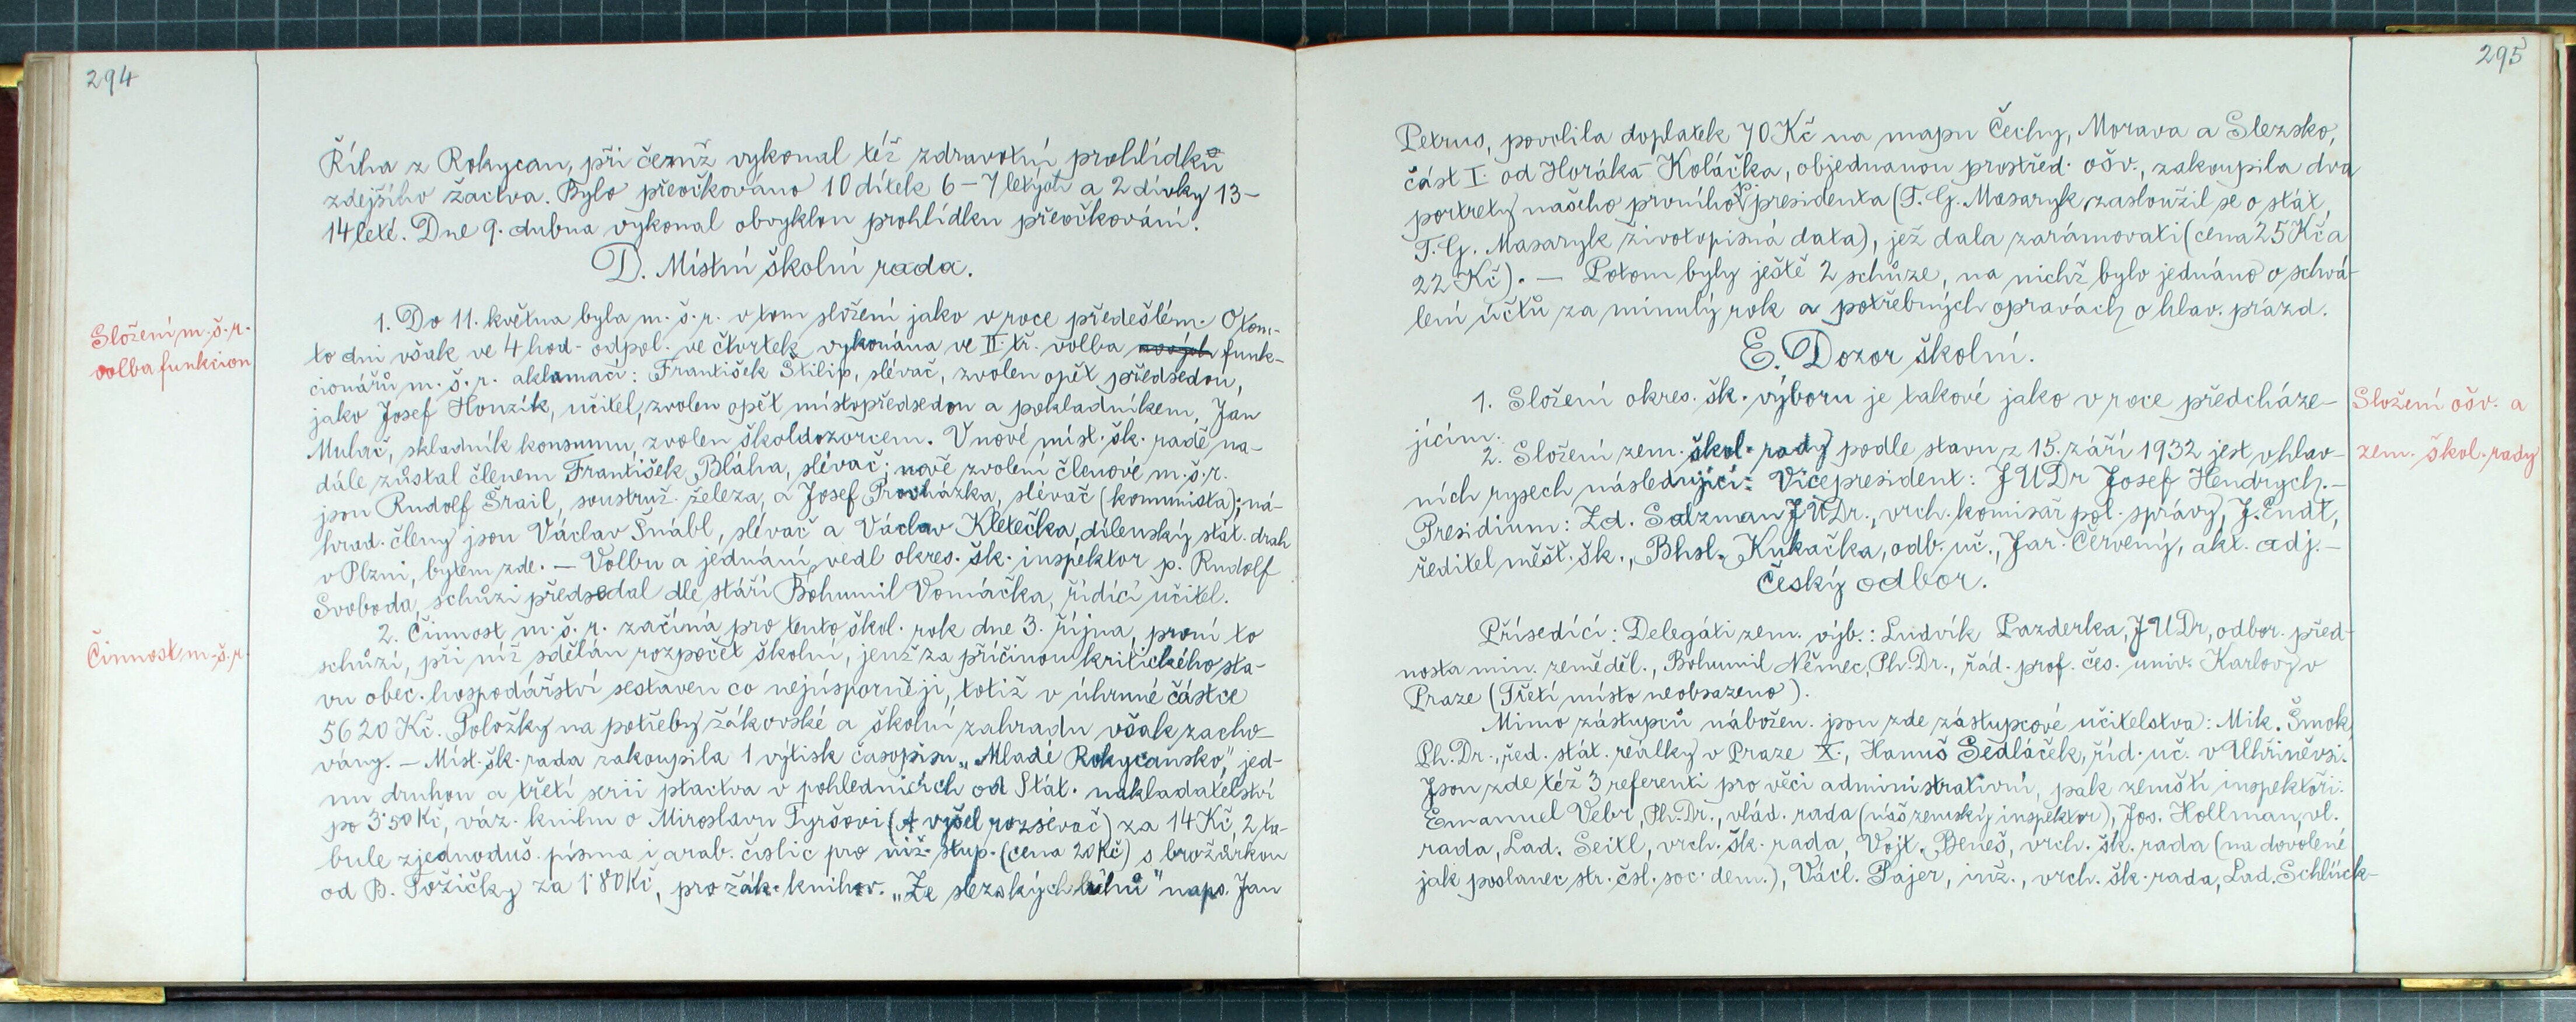 294
Říha z Rokycan, při čemž vykonal též zdravotní prohlídku
zdejšího žactva. Bylo přeočkováno 10 dítek 6–7 letých a 2 dívky 13–
14 leté. Dne 9. dubna vykonal obvyklou prohlídku přeočkování.
D. Místní školní rada.
Složení m. š. r.
volba funkcion
1. Do 11. května byla m. š. r. v tom složení jako v roce předešlém. O tom-
to dni však ve 4 hod. odpol. ve čtvrtek vykonána ve II. tř. volba funk-
cionářů m. š. r. aklamací: František Stilip, slévač, zvolen opět předsedou,
jako Josef Honzík, učitel, zvolen opět místopředsedou a pokladníkem, Jan
Muhač, skladník konsumu, zvolen školdozorcem. V nové míst. šk. radě na-
dále zůstal členem František Bláha, slévač; nově zvolení členové m. š. r.
jsou Rudolf Šrail, soustruž. železa, a Josef Procházka, slévač (komunista); ná-
hrad. členy jsou Václav Šnábl, slévač a Václav Kletečka, dílenský stát. drah
v Plzni, bytem zde. — Volbu a jednání vedl okres. šk. inspektor p. Rudolf
Svoboda, schůzi předsedal dle stáří Bohumil Vonáčka, řídící učitel.
Činnost m. š. r.
2. Činnost m. š. r. začíná pro tento škol. rok dne 3. října, první to
schůzí, při níž sdělán rozpočet školní, jenž za příčinou kritického sta-
vu obec. hospodářství sestaven co nejúsporněji, totiž v úhrnné částce
5620 Kč. Položky na potřeby žákovské a školní zahradu však zacho-
vány. — Míst. šk. rada zakoupila 1 výtisk časopisu „Mladé Rokycansko", jed-
nu druhou a třetí serii ptactva v pohlednicích od Stát. nakladatelství
po 3·50 Kč, váz. knihu o Miroslavu Tyršovi (A vyšel rozsévač) za 14 Kč, 2 ta-
bule zjednoduš. písma i arab. číslic pro niž. stup. (cena 20 Kč) s brožurkou
od B. Tožičky za 1·80 Kč, pro žák. knihov. „Ze slezských luhů" naps. Jan
295
Petrus, povolila doplatek 70 Kč na mapu Čechy, Morava a Slezsko,
část I. od Horáka-Koláčka, objednanou prostřed. ošv., zakoupila dva
portrety našeho prvního p. presidenta (T. G. Masaryk zasloužil se o stát,
T. G. Masaryk životopisná data), jež dala zarámovati (cena 25 Kč a
22 Kč). — Potom byly ještě 2 schůze, na nichž bylo jednáno o schvá-
lení účtů za minulý rok a potřebných opravách o hlav. prázd.
E. Dozor školní.
1. Složení okres. šk. výboru je takové jako v roce předcháze-
jícím.
Složení ošv. a
zem. škol. rady
2. Složení zem. škol. rady podle stavu z 15. září 1932 jest v hlav-
ních rysech následující: Vicepresident: JUDr Josef Hendrych. —
Presidium: Zd. Salzman JUDr., vrch. komisař pol. správy, J. Endt,
ředitel měšť. šk., Bhsl. Kukačka, odb. uč., Jar. Červený, akt. adj. —
Český odbor.
Přísedící: Delegáti zem. výb.: Ludvík Pazderka, JUDr, odbor. před-
nosta min. zeměděl., Bohumil Němec, Ph.Dr., řád. prof. čes. univ. Karlovy v
Praze (Třetí místo neobsazeno).
Mimo zástupců nábožen. jsou zde zástupcové učitelstva: Mik. Šmok,
Ph. Dr., řed. stát. reálky v Praze X., Hanuš Sedláček, říd. uč. v Uhřiněvsi.
Jsou zde též 3 referenti pro věci administrativní, pak zemští inspektoři:
Emanuel Vebr, Ph.Dr., vlád. rada (náš zemský inspektor), Jos. Hollman, vl.
rada, Lad. Seitl, vrch. šk. rada, Vojt. Beneš, vrch. šk. rada (na dovolené
jak poslanec str. čsl. soc. dem.), Václ. Pajer, inž., vrch. šk. rada, Lad. Schlück-